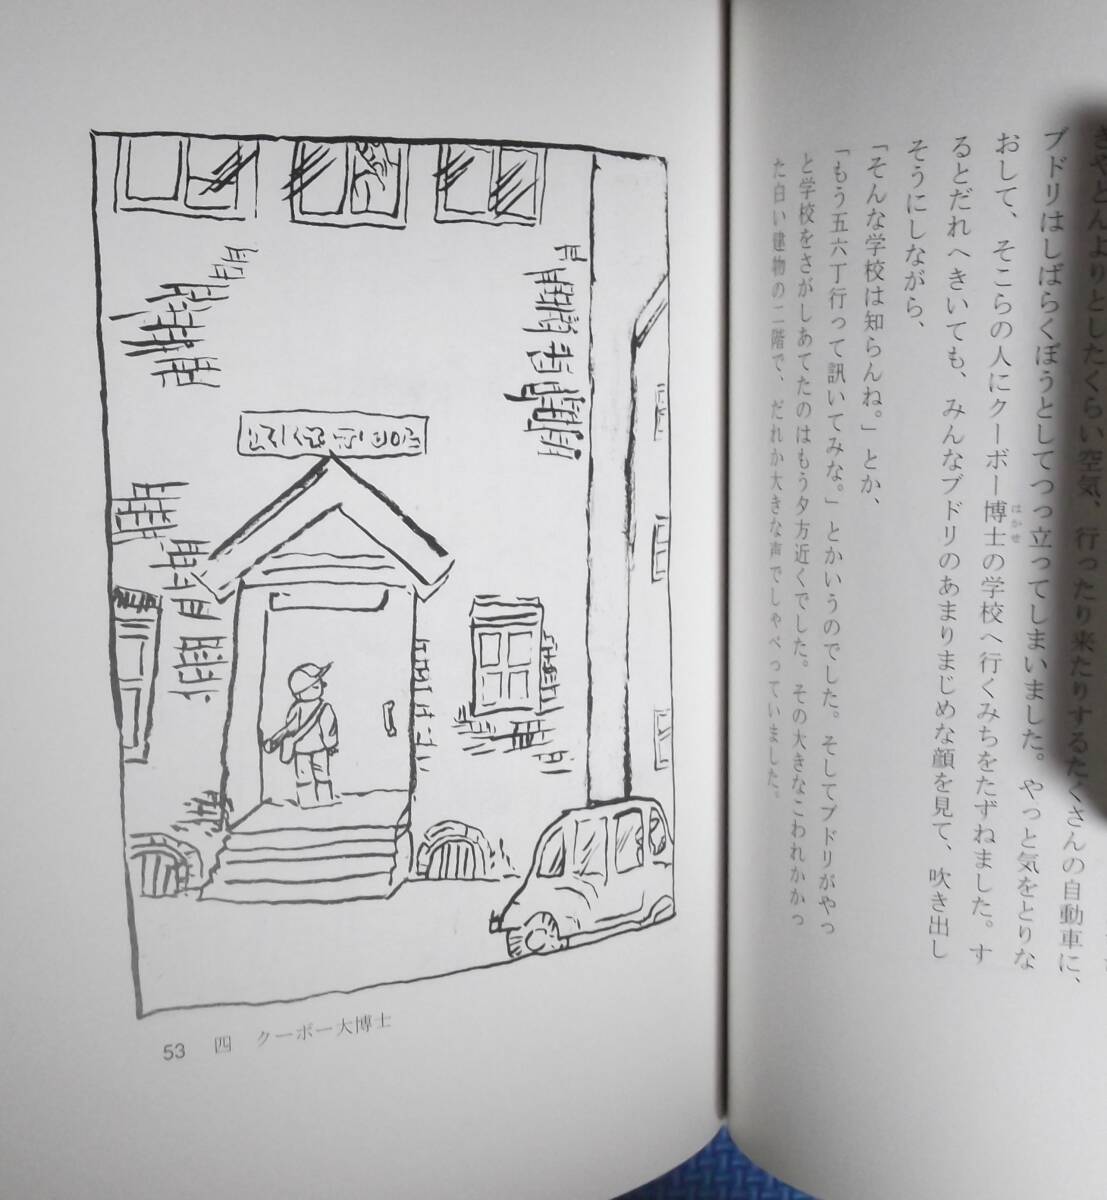 きやどんよりとしたくらい空気、行ったり来たりするたくさんの自動車に、
ブドリはしばらくぼうとしてつっ立ってしまいました。やっと気をとりな
おして、そこらの人にクーボー博士の学校へ行くみちをたずねました。す
はかせ
るとだれへきいても、みんなブドリのあまりまじめな顔を見て、吹き出し
そうにしながら、
「そんな学校は知らんね。」とか、
「もう五六丁行って訊いてみな。」とかいうのでした。そしてブドリがやっ
と学校をさがしあてたのはもう夕方近くでした。その大きなこわれかかっ
た白い建物の二階で、だれか大きな声でしゃべっていました。
53 四 クーボー大博士